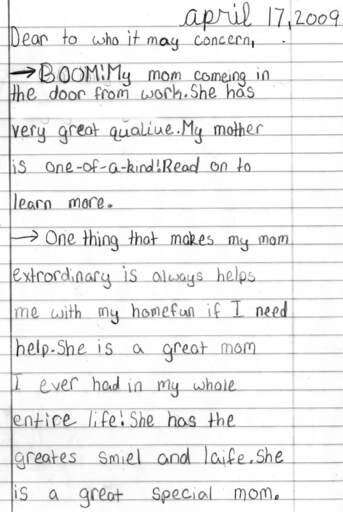 april 17,2009
Dear to who it may concern,
→BOOM!My mom comeing in
the door from work.She has
very great qualiue.My mother
is one-of-a-kind!Read on to
learn more.
→ One thing that makes my mom
extrordinary is always helps
me with my homefun if I need
help.She is a great mom
I ever had in my whole
entire life!She has the
greates smiel and laife.She
is a great special mom.